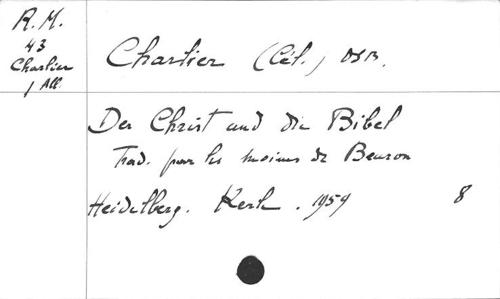 R. M.
43
Charlier
/ All.
Charlier (Cél.) OSB.
Der Christ und die Bibel
Trad. par les moines de Beuron
Heidelberg. Kerle. 1959 8